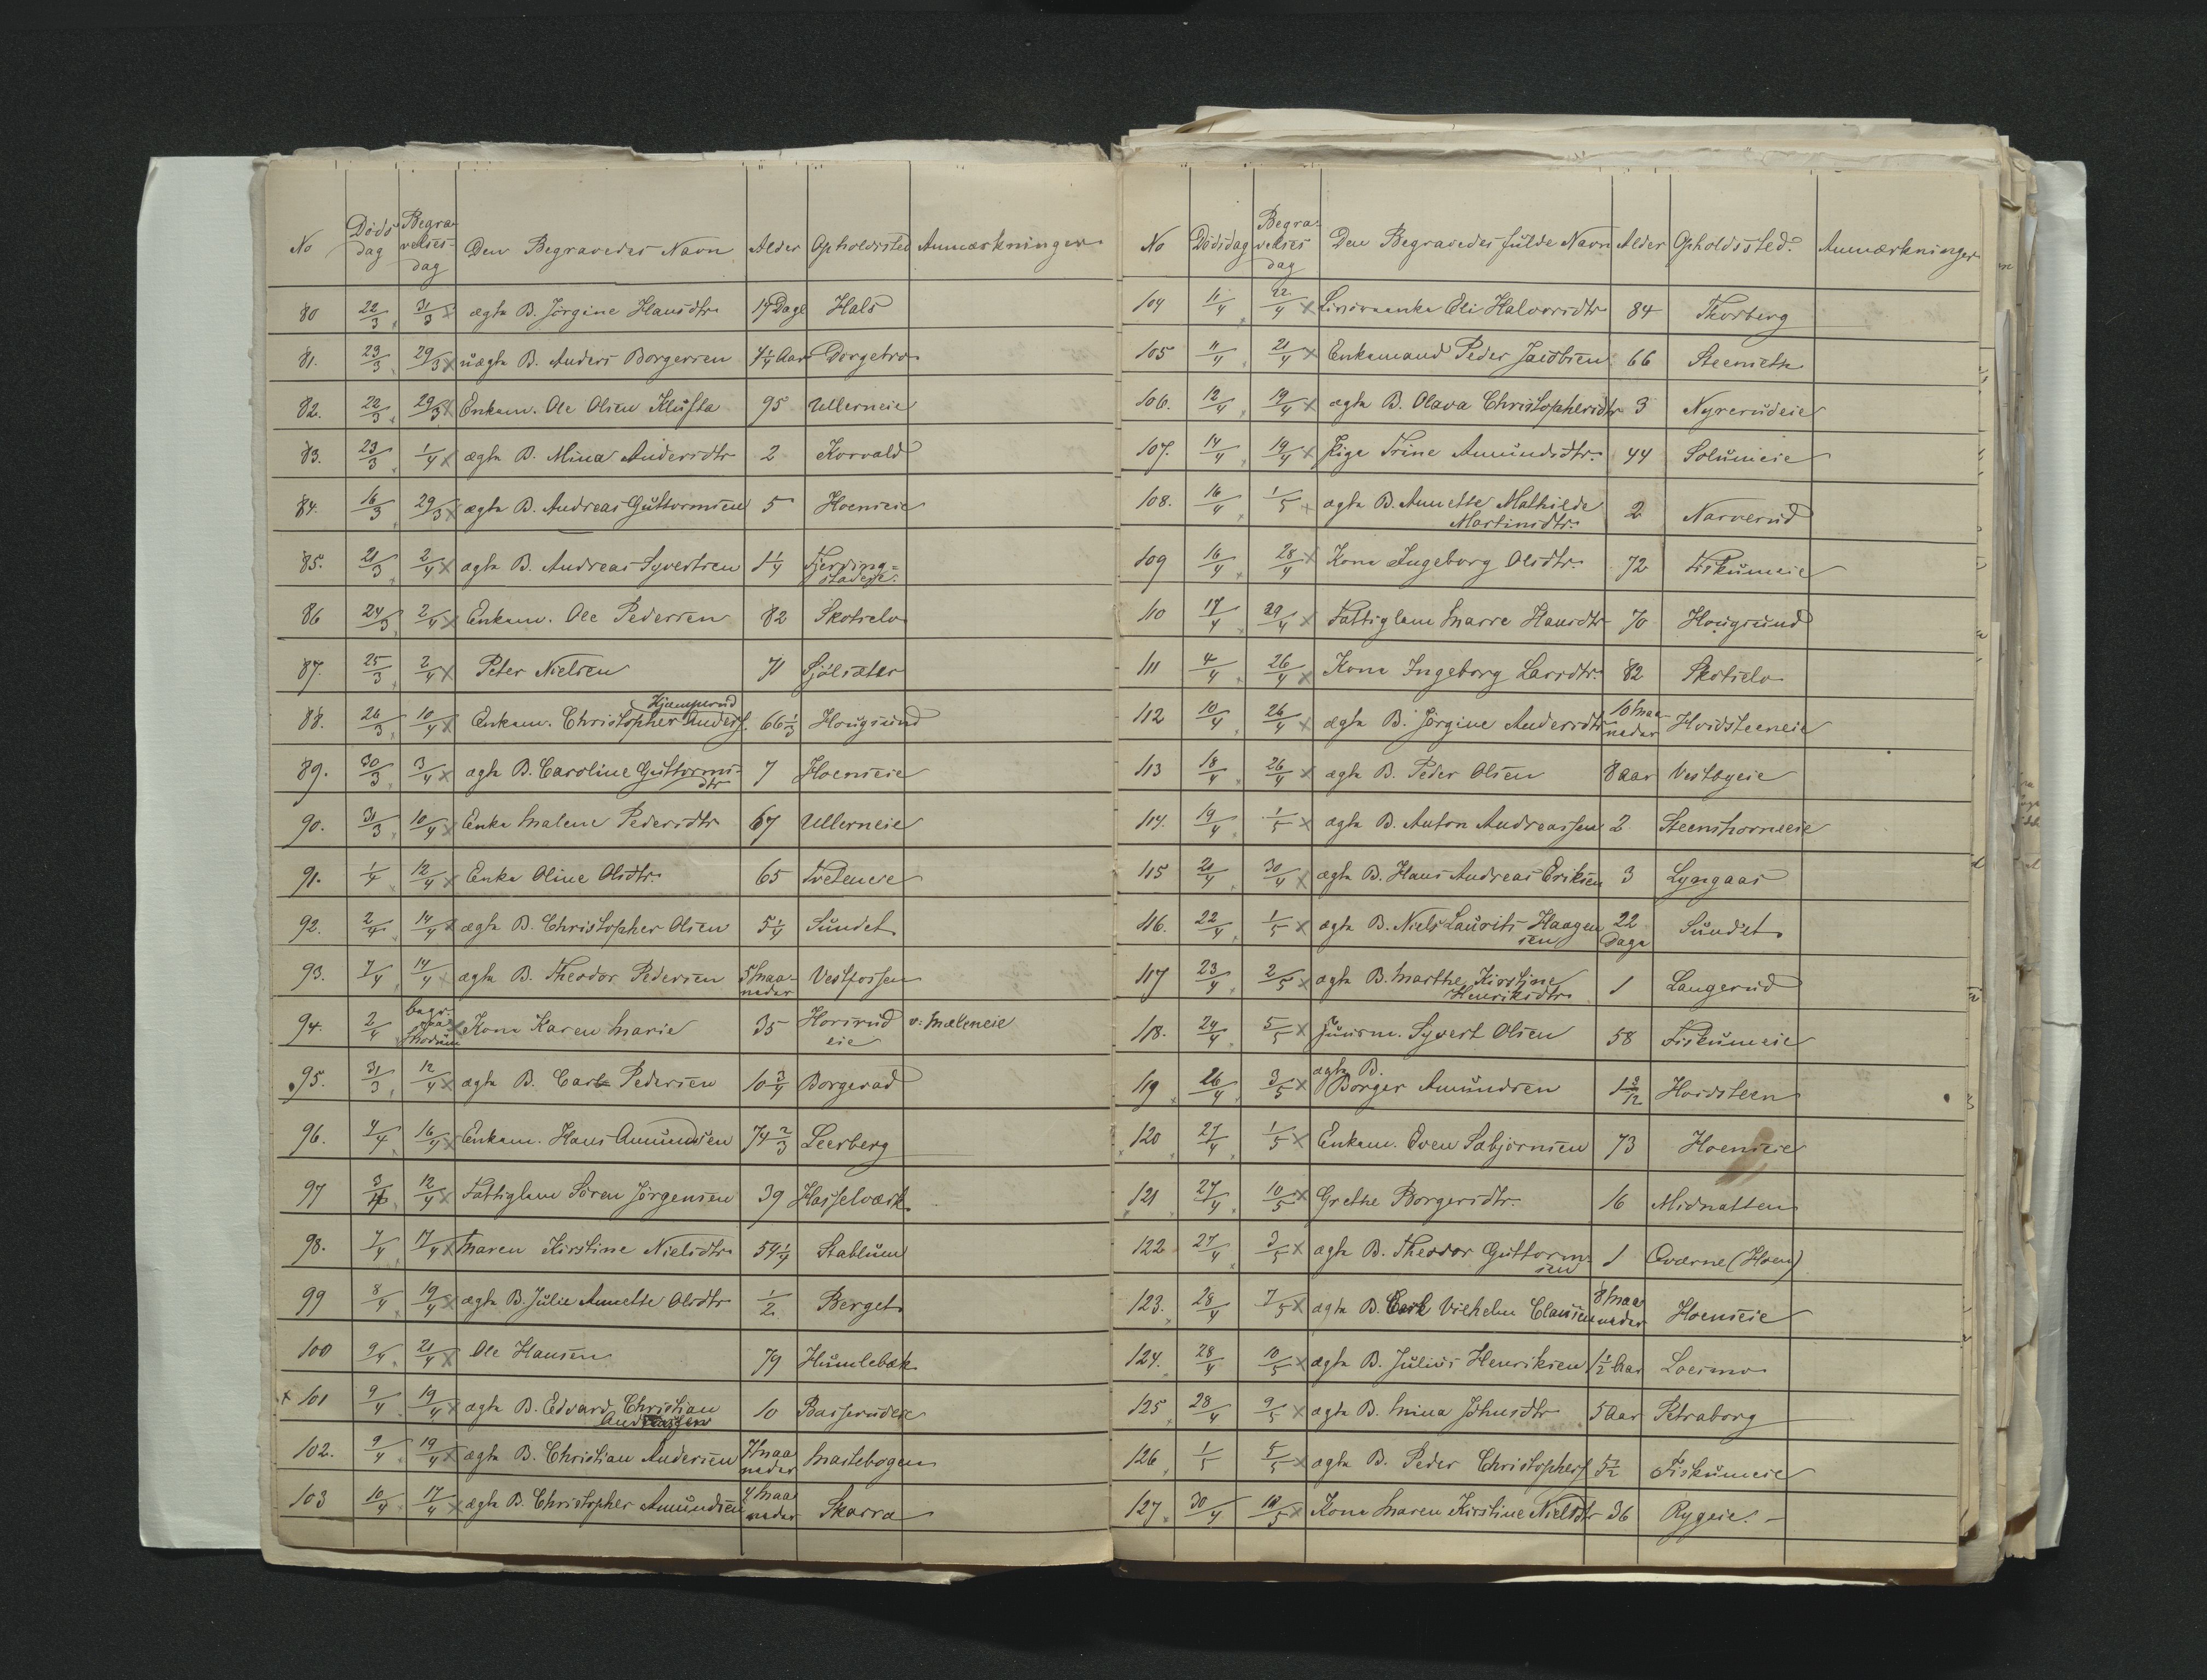 No Døds dag Begravelses- dag Den Begravedes Navn Alder Opholdssted Anmærkninger
80 22/3 31/3 x ægte B. Jørgine Hansdtr 14 Dage Hals
81. 23/3 29/3 x uægte B. Anders Borgersen 4 1/4 Aar Dorgetro
82. 22/3 29/3 x Enkem. Ole Olsen Klufta 95 Ullerneie
83. 23/3 1/4 x ægte B. Mina Andersdtr 2 Korvald
84. 16/3 29/3 x ægte B. Andreas Guttormsen 5 Hoenseie
85. 21/3 2/4 x ægte B. Andreas Syvertsen 1 1/4 Fjerding=
stadeje.
86 24/3 2/4 x Enkem. Ole Pedersen 82 Skotselv
87. 25/3 2/4 x Peter Nielsen 71 Sjölsæter
Kjemperud
88. 26/3 10/4 x Enkem. Christopher Anders. 66 1/3 Hougsund
89. 30/3 3/4 x ægte B. Caroline Guttorms-
dtr 7 Hoenseie
90. 31/3 10/4 x Enke Malene Pedersdtr 67 Ullerneie
91. 1/4 12/4 x Enke Oline Olsdtr. 65 Tveteneie
92. 2/4 14/4 x ægte B. Christopher Olsen 5 1/4 Sundet
93. 7/4 14/4 x ægte B. Theodor Pedersen 5 Maa-
neder Vestfossen
94. 2/4 begr. paa Modum x Kone Karen Marie 35 Horsrud
eie v: Mæleneie
95. 31/3 12/4 x ægte B. Carl Pedersen 10 3/4 Borgerad
96. 4/4 16/4 x Enkem. Hans Amundsen 74 2/3 Leerberg
97 3/4 12/4 x Fattiglem Søren Jørgensen 39 Hasselværk
98. 7/4 17/4 x Maren Kirstine Nielsdtr 54 1/4 Stablum
99 8/4 19/4 x ægte B. Julie Annette Olsdtr 1/2 Berget
100 9/4 21/4 x Ole Hansen 79 Humlebæk
x 101 9/4 19/4 x ægte B. Edvard Christian
Andreassen 10 Basserudeie
102. 9/4 19/4 x ægte B. Christian Andersen 7 Maa
neder Mastebogen
103 10/4 17/4 x ægte B. Christopher Amundsen 4 Maa
neder Skarra
No Dödsdag Begravelses dag Den Begravedes fulde Navn Alder Opholdssted Anmærkninger
104 11/4 22/4 x Eli Halvorsdtr 84 Thorberg
105 11/4 21/4 x Enkemand Peder Jacobsen 66 Steenseth
106. 12/4 19/4 x ægte B. Olava Christophersdtr 3 Nyrerudeie
107. 14/4 19/4 x Pige Trine Amundsdtr. 44 Solumeie
108. 16/4 1/5 x ægte B. Annette Mathilde
Martinsdtr. 2 Narverud
109 16/4 28/4 x Kone Ingeborg Olsdtr. 72 Fiskumeie
110 17/4 29/4 x Fattiglem Marie Hansdtr 70 Hougsund
111 4/4 26/4 x Kone Ingeborg Larsdtr. 82 Skotselv
112 10/4 26/4 x ægte B. Jørgine Andersdtr 10 Maa-
neder Hvidsteeneie
113 18/4 26/4 x ægte B. Peder Olsen 8 Aar Vestbyeie
114. 19/4 1/5 x ægte B. Anton Andreassen 2 Steenshorneeie
115 21/4 30/4 x ægte B. Hans Andreas Eriksen 3 Lyngaas
116. 22/4 1/5 x ægte B. Niels Laurits Haagen
sen 22
Dage Sundet
117 23/4 2/5 x ægte B. Marthe Kirstine
Henriksdtr. 1 Langerud
118. 24/4 5/5 x Huusm. Syvert Olsen 58 Fiskumeie
119 26/4 3/5 x ægte B.
Borger Amundsen 1 3/12 Hvidsteen
120 27/4 1/5 x Enkem. Even Sabjørnsen 73 Hoenseie
121 27/4 10/5 x Grethe Borgersdtr. 16 Midnatten
122 27/4 3/5 x ægte B. Theodor Guttorm-
sen 1 Qværne (Hoen)
123. 28/4 7/5 x ægte B. Carl Vilhelm Clausen 8 Maa
neder Hoenseie
124. 28/4 10/5 x ægte B. Julius Henriksen 1 1/2 Aar Loesmo
125 28/4 9/5 x ægte B. Mina Johnsdtr 5 Aar Petraborg
126 1/5 5/5 x ægte B. Peder Christophers. 5 1/2 Fiskumeie
127. 30/4 10/5 x Kone Maren Kirstine Nielsdtr 36 Rygeie. -